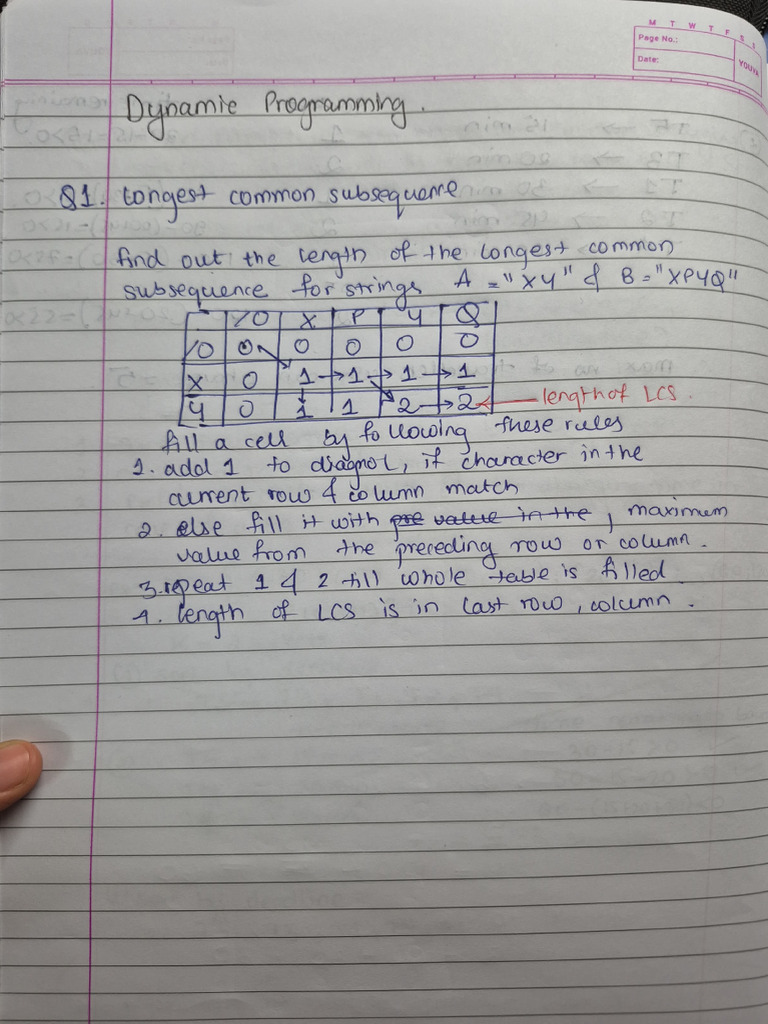 M T W T F S S
Page No.:
Date:
YOUVA
Dynamic Programming.
Q1. Longest common subsequence
find out the length of the longest common
subsequence for strings A = "XY" & B = "XPYQ"
10 X P Y Q
10 0 0 0 0 0
X 0 1 → 1 → 1 → 1
Y 0 1 1 2 → 2 ← length of LCS.
fill a cell by following these rules
1. add 1 to diagnol, if character in the
current row & column match
2. else fill it with pre value in the, maximum
value from the preceding row or column.
3. repeat 1 & 2 till whole table is filled
4. length of LCS is in last row, column.